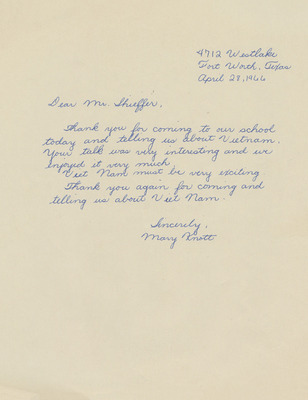 4712 Westlake
Fort Worth, Texas
April 28, 1966
Dear Mr. Shieffer,
Thank you for coming to our school
today and telling us about Vietnam.
Your talk was very interesting and we
enjoyed it very much.
Viet Nam must be very exciting
Thank you again for coming and
telling us about Viet Nam.
Sincerely,
Mary Knott